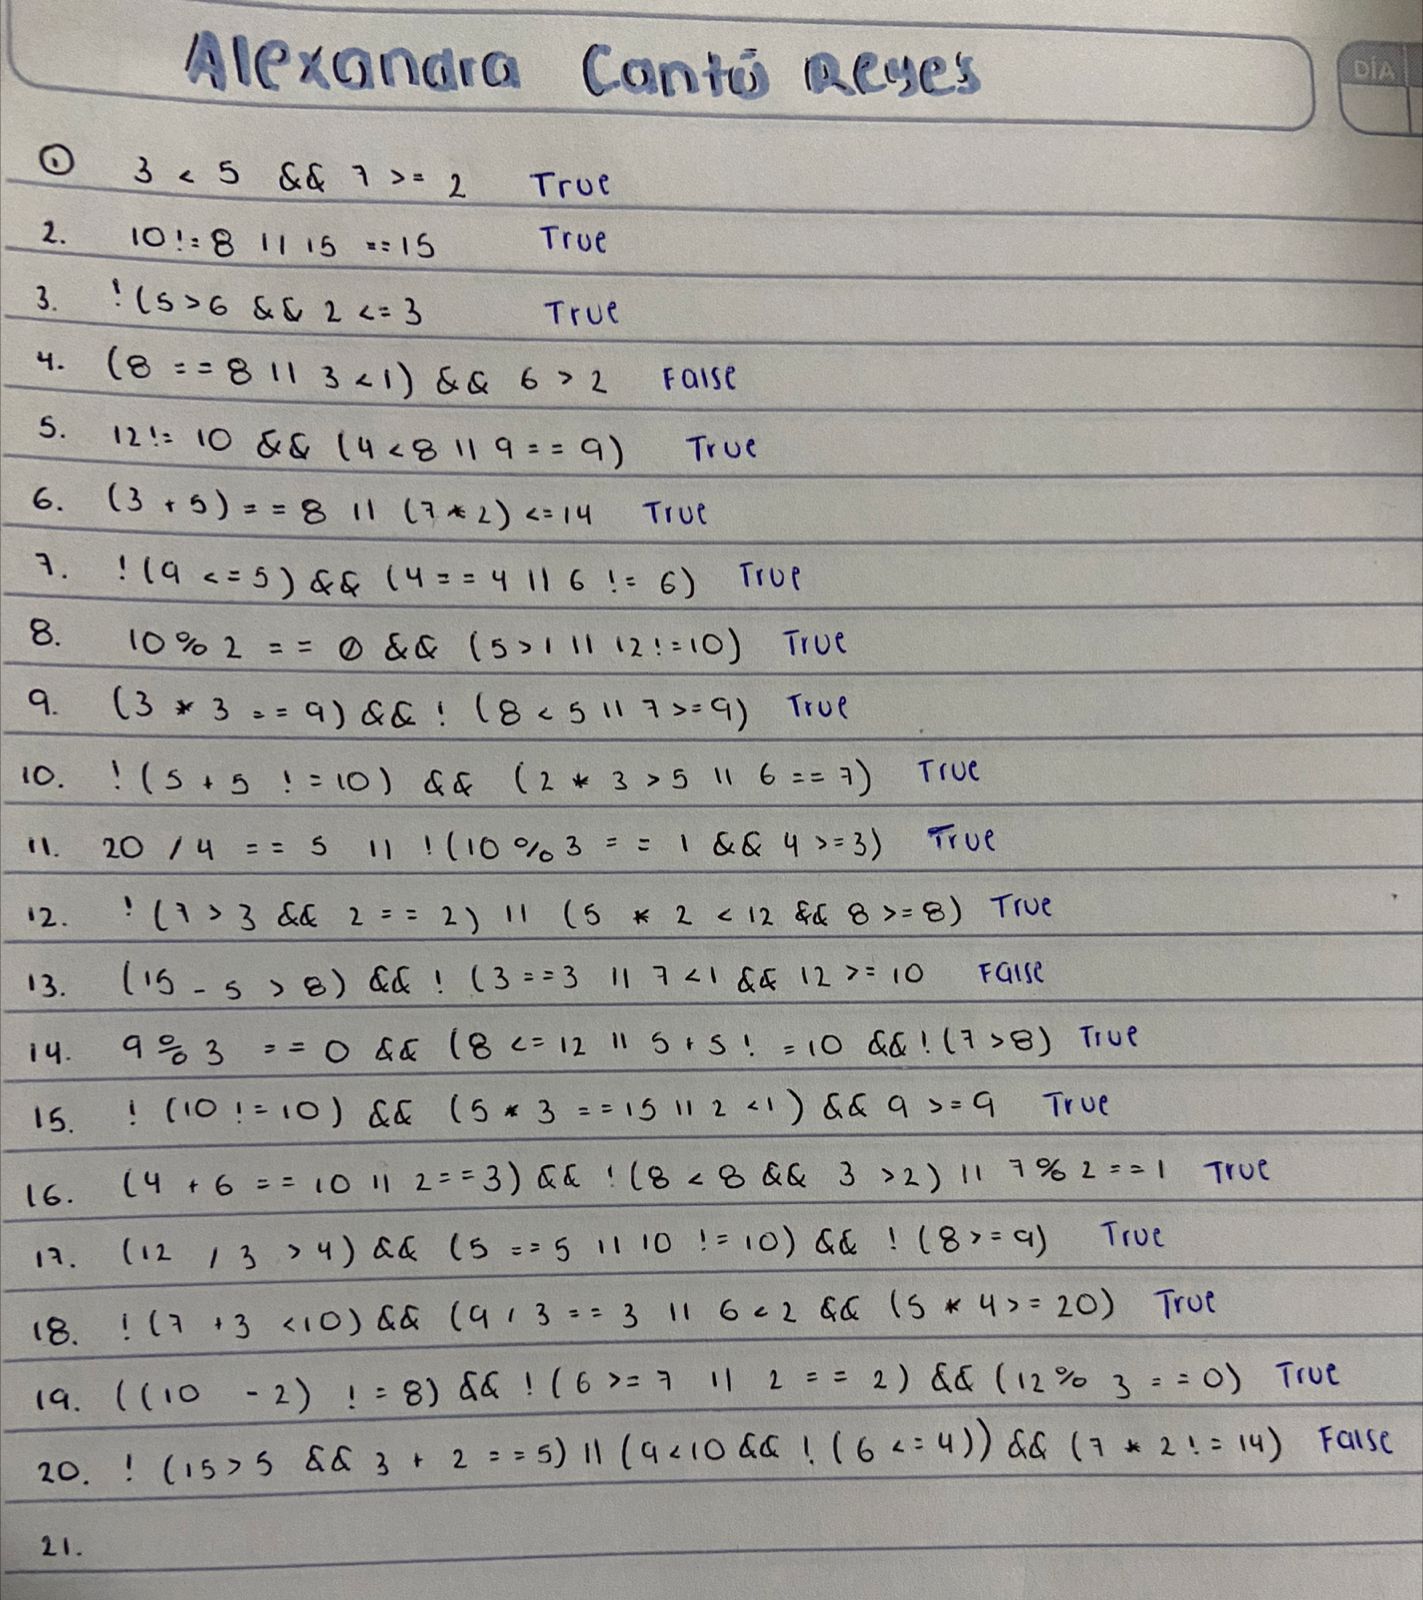 Alexandra Cantú Reyes
DÍA
1. 3 < 5 && 7 >= 2 True
2. 10 != 8 || 15 == 15 True
3. !(5 > 6 && 2 <= 3 True
4. (8 == 8 || 3 < 1) && 6 > 2 False
5. 12 != 10 && (4 < 8 || 9 == 9) True
6. (3 + 5) == 8 || (7 * 2) <= 14 True
7. !(9 <= 5) && (4 == 4 || 6 != 6) True
8. 10 % 2 == 0 && (5 > 1 || 12 != 10) True
9. (3 * 3 == 9) && !(8 < 5 || 7 >= 9) True
10. !(5 + 5 != 10) && (2 * 3 > 5 || 6 == 7) True
11. 20 / 4 == 5 || !(10 % 3 == 1 && 4 >= 3) True
12. !(7 > 3 && 2 == 2) || (5 * 2 < 12 && 8 >= 8) True
13. (15 - 5 > 8) && !(3 == 3 || 7 < 1 && 12 >= 10 False
14. 9 % 3 == 0 && (8 <= 12 || 5 + 5 != 10 && !(7 > 8) True
15. !(10 != 10) && (5 * 3 == 15 || 2 < 1) && 9 >= 9 True
16. (4 + 6 == 10 || 2 == 3) && !(8 < 8 && 3 > 2) || 7 % 2 == 1 True
17. (12 / 3 > 4) && (5 == 5 || 10 != 10) && !(8 >= 9) True
18. !(7 + 3 < 10) && (9 / 3 == 3 || 6 < 2 && (5 * 4 >= 20) True
19. ((10 - 2) != 8) && !(6 >= 7 || 2 == 2) && (12 % 3 == 0) True
20. !(15 > 5 && 3 + 2 == 5) || (9 < 10 && !(6 <= 4)) && (7 * 2 != 14) False
21.